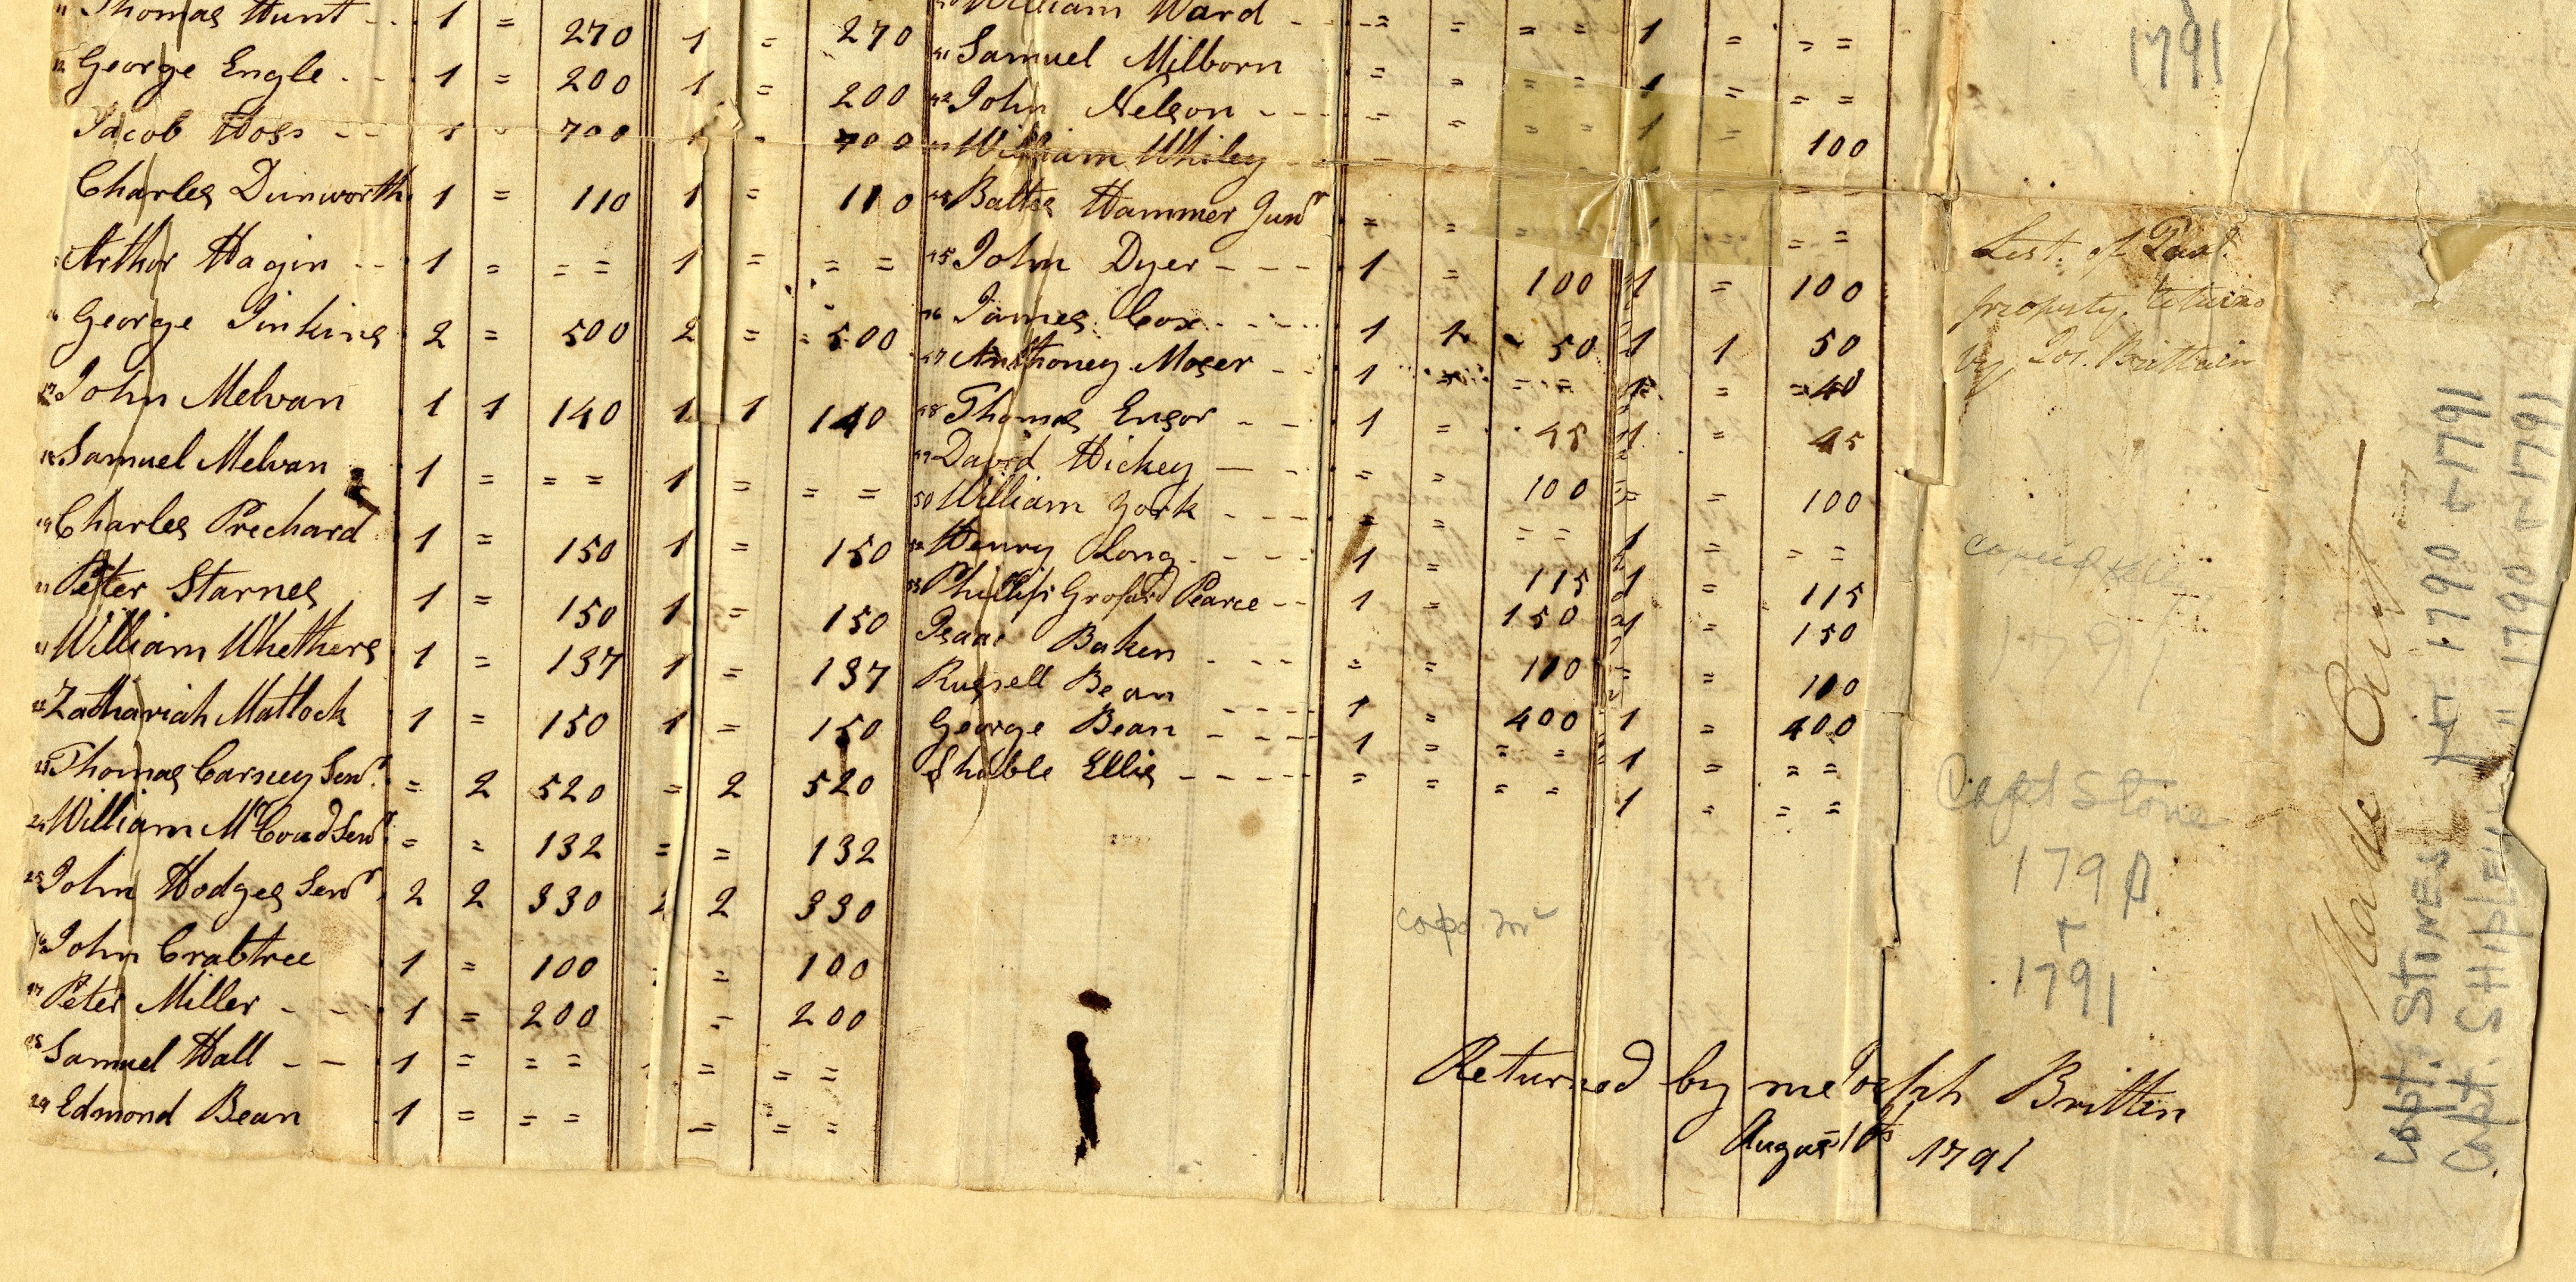 11 Thomas Hunt - - 1 = 270 1 = 270
12 George Engle - - 1 = 200 1 = 200
Jacob Hoss - - 1 = 700 1 = 700
Charles Dunworth 1 = 110 1 = 110
Arthor Hagin - - 1 = = = 1 = = =
16 George Jinkins 2 = 500 2 = = 500
17 John Melvan 1 1 140 1 1 140
18 Samuel Melvan 1 = = = 1 = = =
19 Charles Prechard 1 = 150 1 = 150
Peter Starnes 1 = 150 1 = 150
21 William Whethers 1 = 137 1 = 137
22 Zathariah Matlock 1 = 150 1 = 150
23 Thomas Carney Senr. = 2 520 = 2 520
24 William McCoud Senr. = = 132 = = 132
25 John Hodges Senr. 2 2 330 2 2 330
26 John Crabtree 1 = 100 = 100
27 Peter Miller - - 1 = 200 = 200
28 Samuel Hall - - 1 = = = = = =
29 Edmond Bean 1 = = = = = =
40 William Ward - - - = = = = 1 = = =
41 Samuel Milborn = = = = 1 = = =
42 John Nelson - - - = = = = 1 = 100
43 William Whiley
44 Baltes Hammer Junr = = = =
45 John Dyer - - - 1 = 100 1 = 100
46 James Cox - - - 1 1 50 1 1 50
47 Anthoney Moser - - 1 = = = 1 = = 40
48 Thomas Ensor - - 1 = 45 1 = 45
49 David Hickey - - = = 100 = = 100
50 William York - - - = = = = 1 = = =
52 Henry Long - - - 1 = 115 1 = 115
53 Phillip Pearce - - 1 = 150 1 = 150
Isaac Baken - - - = = 100 = = 100
Russell Bean - - - 1 = 400 1 = 400
George Bean - - - 1 = = = 1 = = =
Shable Ellis - - - - = = = = 1 = = =
Returned by me Joseph Britten
August 1791
1791
List of
property returns
by Jos. Brittain
copied
1791
Capt Stone
1790
+
1791
Made Out
Capt. STINES 1790 + 1791
Capt. SHIPLEY " 1790 + 1791